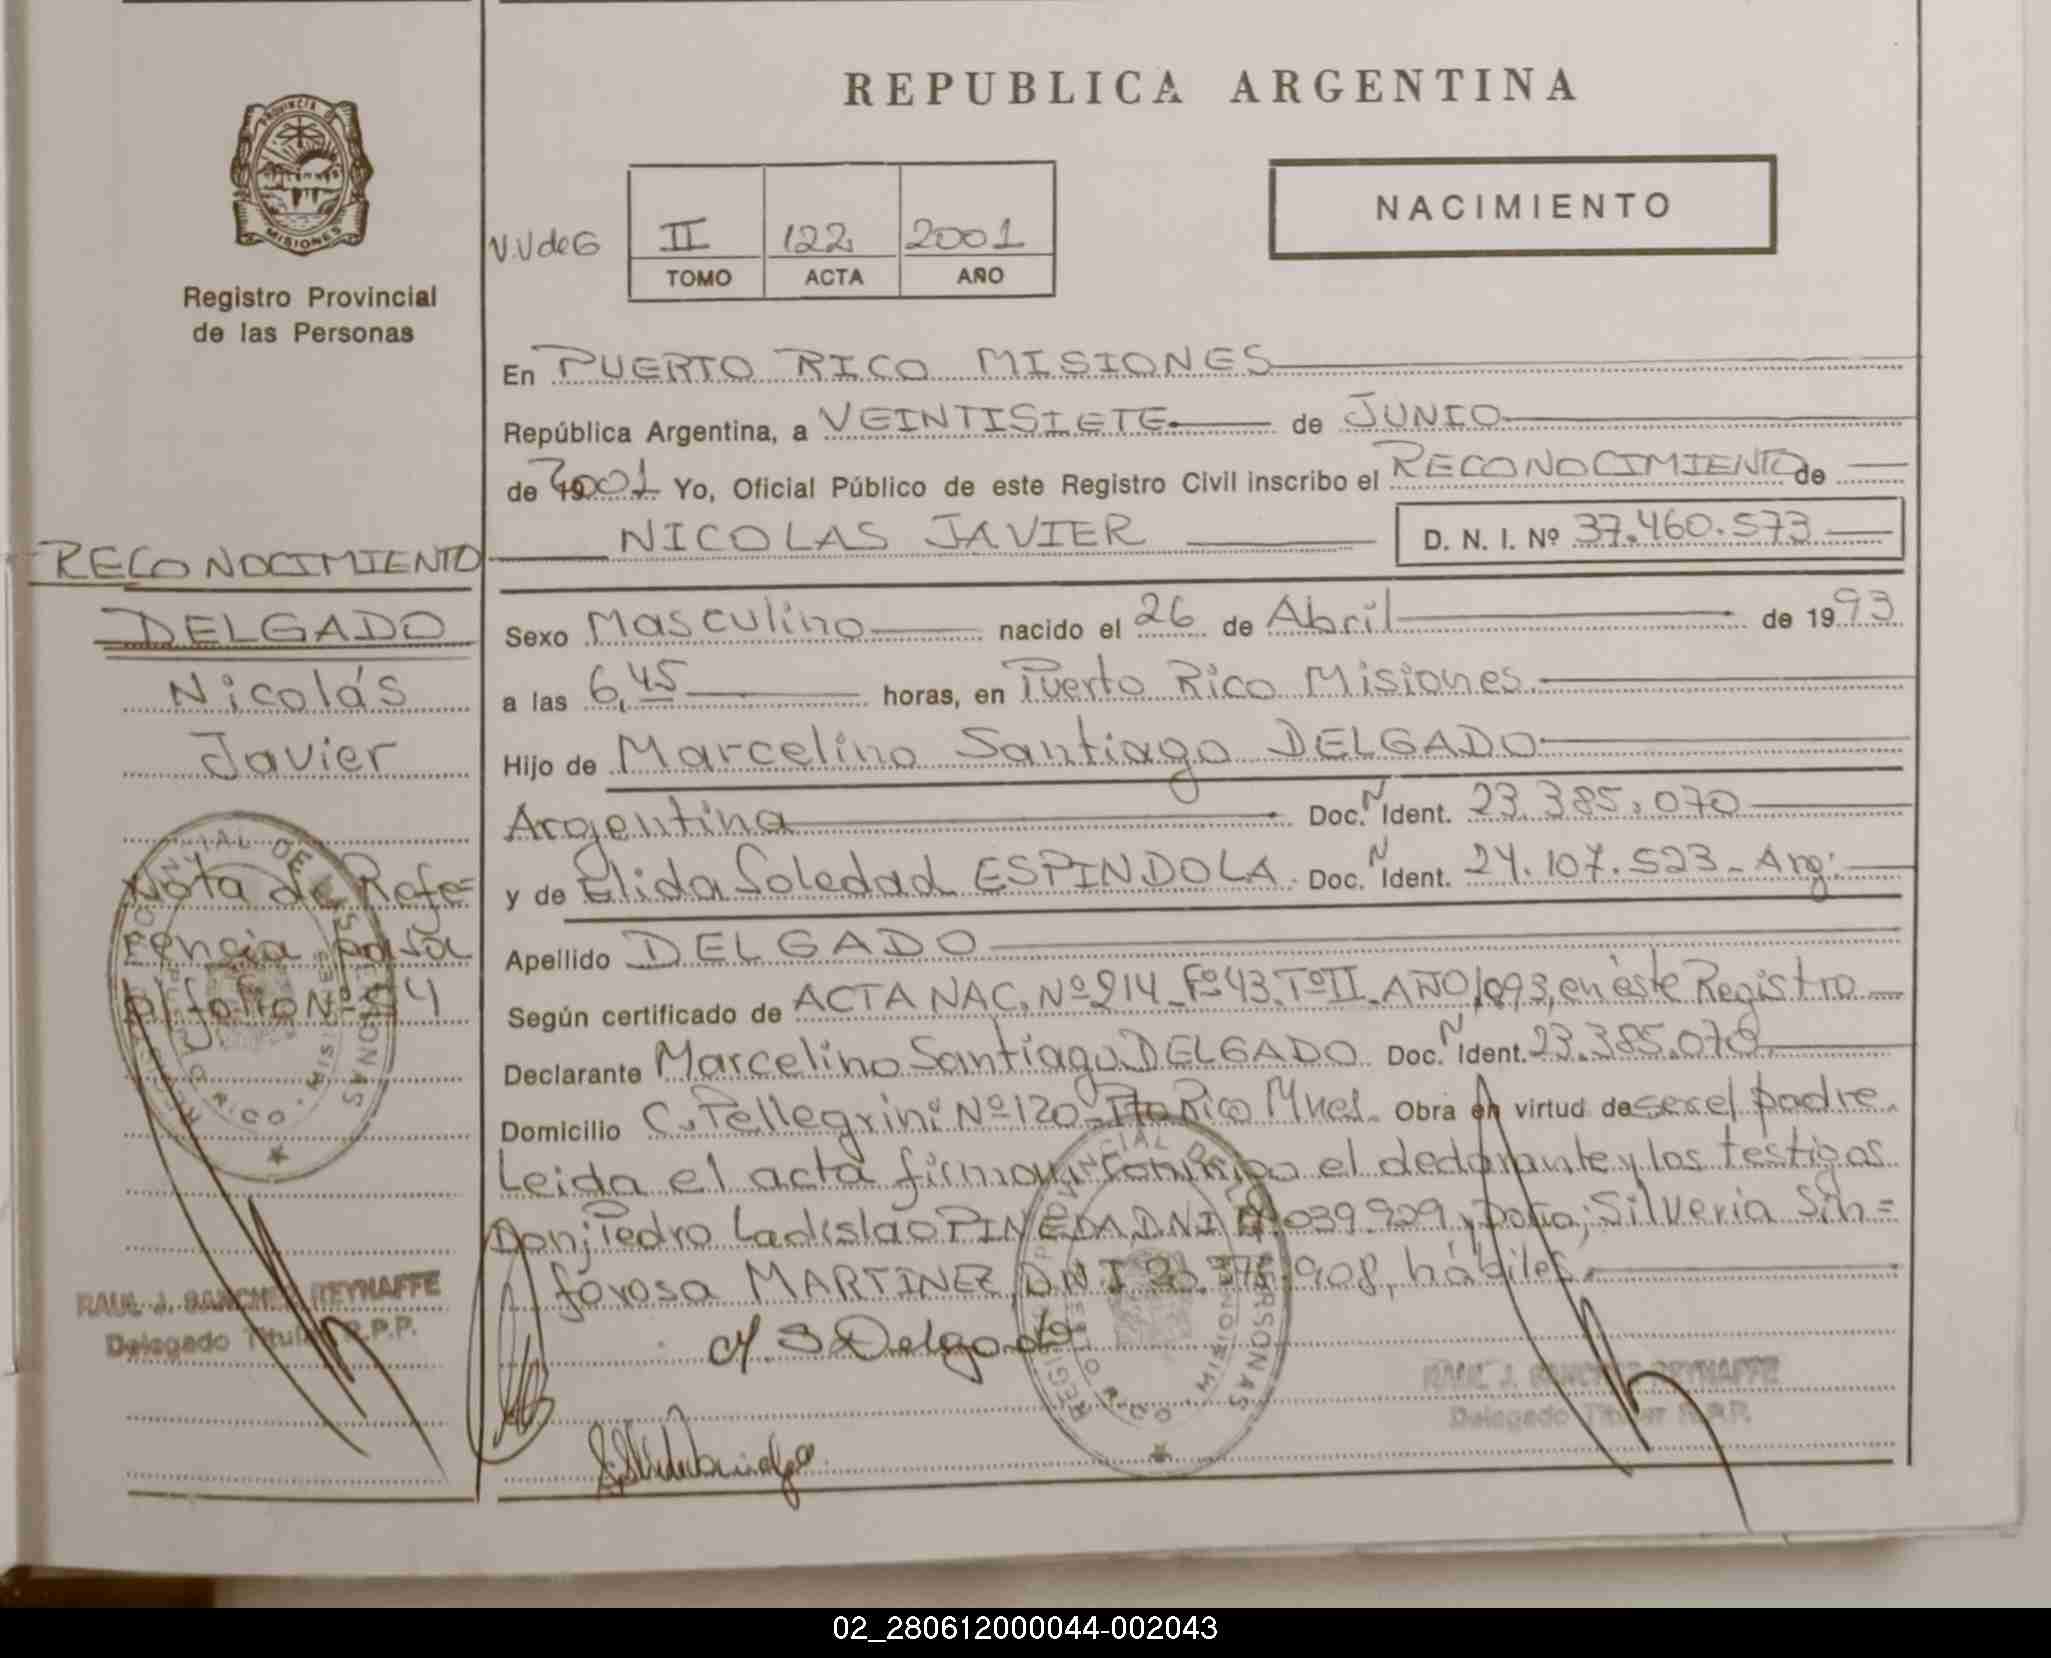 REPUBLICA ARGENTINA
NACIMIENTO
PROVINCIA DE
MISIONES
Registro Provincial
de las Personas
V.V de G
II 122 2001
TOMO ACTA AÑO
En PUERTO RICO MISIONES
República Argentina, a VEINTISIETE de JUNIO
de 2001 Yo, Oficial Público de este Registro Civil inscribo el RECONOCIMIENTO de
NICOLAS JAVIER D. N. I. Nº 37.460.573
Sexo Masculino nacido el 26 de Abril de 1993
a las 6,45 horas, en Puerto Rico Misiones
Hijo de Marcelino Santiago DELGADO
Argentina Doc. N Ident. 23.385.070
y de Elida Soledad ESPINDOLA Doc. N Ident. 24.107.523 - Arg.
Apellido DELGADO
Según certificado de ACTA NAC. Nº 214 Fº 43 Tº II AÑO 1993, en éste Registro
Declarante Marcelino Santiago DELGADO Doc. N Ident. 23.385.070
Domicilio C. Pellegrini Nº 120 Pto Rico Mnes. Obra en virtud de ser el padre.
Leida el acta firman conmigo el declarante y los testigos
Don; Pedro Ladislao PINEDA, DNI 039.929 y Doña; Silveria Sin=
forosa MARTINEZ, DNI 908, hábiles.
M. S Delgado
RAUL J. SANCHEZ REYNAFFE
Delegado Titular R.P.P.
RECONOCIMIENTO
DELGADO
Nicolás
Javier
Nota de Refe=
rencia pasa
p/folio Nº 54
RAUL J. SANCHEZ REYNAFFE
Delegado Titular R.P.P.
02_280612000044-002043